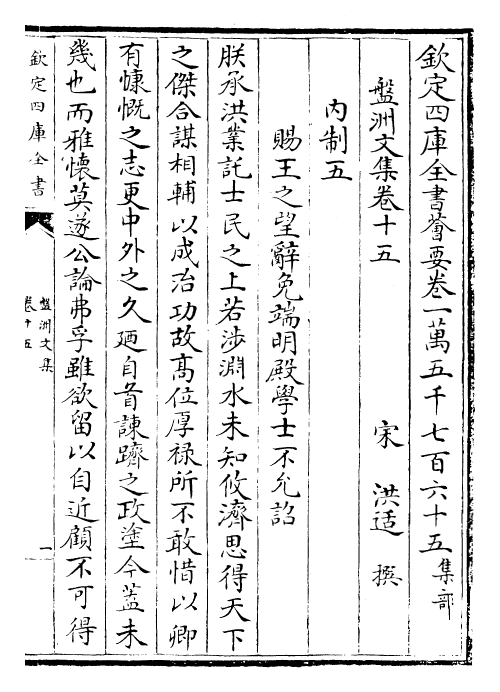 欽定四庫全書薈要卷一萬五千七百六十五集部
盤洲文集卷十五　宋　洪适　撰
內制五
賜王之望辭免端明殿學士不允詔
朕承洪業託士民之上若涉淵水未知攸濟思得天下
之傑合謀相輔以成治功故髙位厚禄所不敢惜以卿
有慷慨之志更中外之久廼自首諫躋之政塗今蓋未
幾也而雅懐莫遂公論弗孚雖欲留以自近顧不可得
欽定四庫全書
盤洲文集
卷十五
一